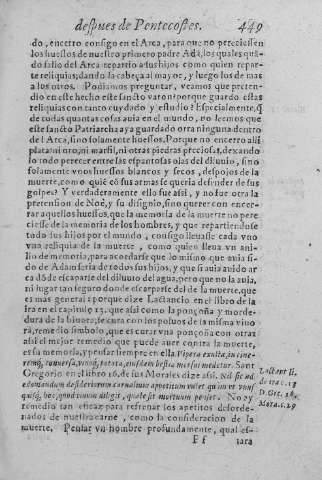 despues de Pentecostes. 449
do, encerro consigo en el Arca, para que no pereciessen
los huessos de nuestro primero padre Adã, los quales quã-
do salio del Arca repartio a sus hijos como quien repar-
te reliquias; dando la cabeça al mayor, y luego los de mas
a los otros. Podiamos preguntar, veamos que preten-
dio en este hecho este sancto varon? porque guardo estas
reliquias con tanto cuydado y estudio? Especialmente, q̃
de todas quantas cosas auia en el mundo, no leemos que
este sancto Patriarcha aya guardado otra ninguna dentro
del Arca, sino solamente huessos. Porque no encerro alli
plata ni oro, ni marfil, ni otras piedras preciosas, dexando
lo todo perecer entre las espantosas olas del diluuio, sino
solamente vnos huessos blancos y secos, despojos de la
muerte, como quiẽ cõ sus armas se queria defender de sus
golpes? Y verdaderamente ello fue assi, y no fue otra la
pretension de Noe, y su disignio, sino querer con encer-
rar aquellos huessos, que la memoria de la muerte no pere
ciesse de la memoria de los hombres, y que repartiendose
todo sus hijos por el mundo, consigo lleuasse cada vno
vna reliquia de la muerte, como quien lleua vn ani-
llo de memoria, para acordarse que lo mismo que auia si-
do de Adam seria de todos sus hijos, y que si auia auido ar
ca dõde escaparse del diluuio del agua, pero que no la auia,
ni lugar tan seguro donde escaparse del de la muerte, que
es mas general: porque dize Lactancio en el libro de la
ira en el capitulo 13. que assi como la ponçoña y morde-
dura de la biuora, se cura con los poluos de la misma viuo
ra, remedio simbolo, que es curar vna ponçoña con otra:
assi el mejor remedio que puede auer contra la muerte,
es su memoria, y pensar siempre en ella. Vipera exusta, in cine-
remq̃, conuersa, eiusdem bestiæ morsui medetur. Sant
Gregorio en el libro 16. de sus Morales dize assi. Nil sic ad
edomandum desideriorum carnalium appetitum valet quàm vt vnus
quisq̃, hoc, quod viuum diligit, quale sit mortuum penset. No ay
remedio tan eficaz para refrenar los apetitos desorde-
nados de nuestra carne, como la consideracion de la
muerte. Pensar vn hombre profundamente, qual es-
Lactent. li.
de ira c. 13
D. Gre. 16.
Mora. c. 29
Ff tara